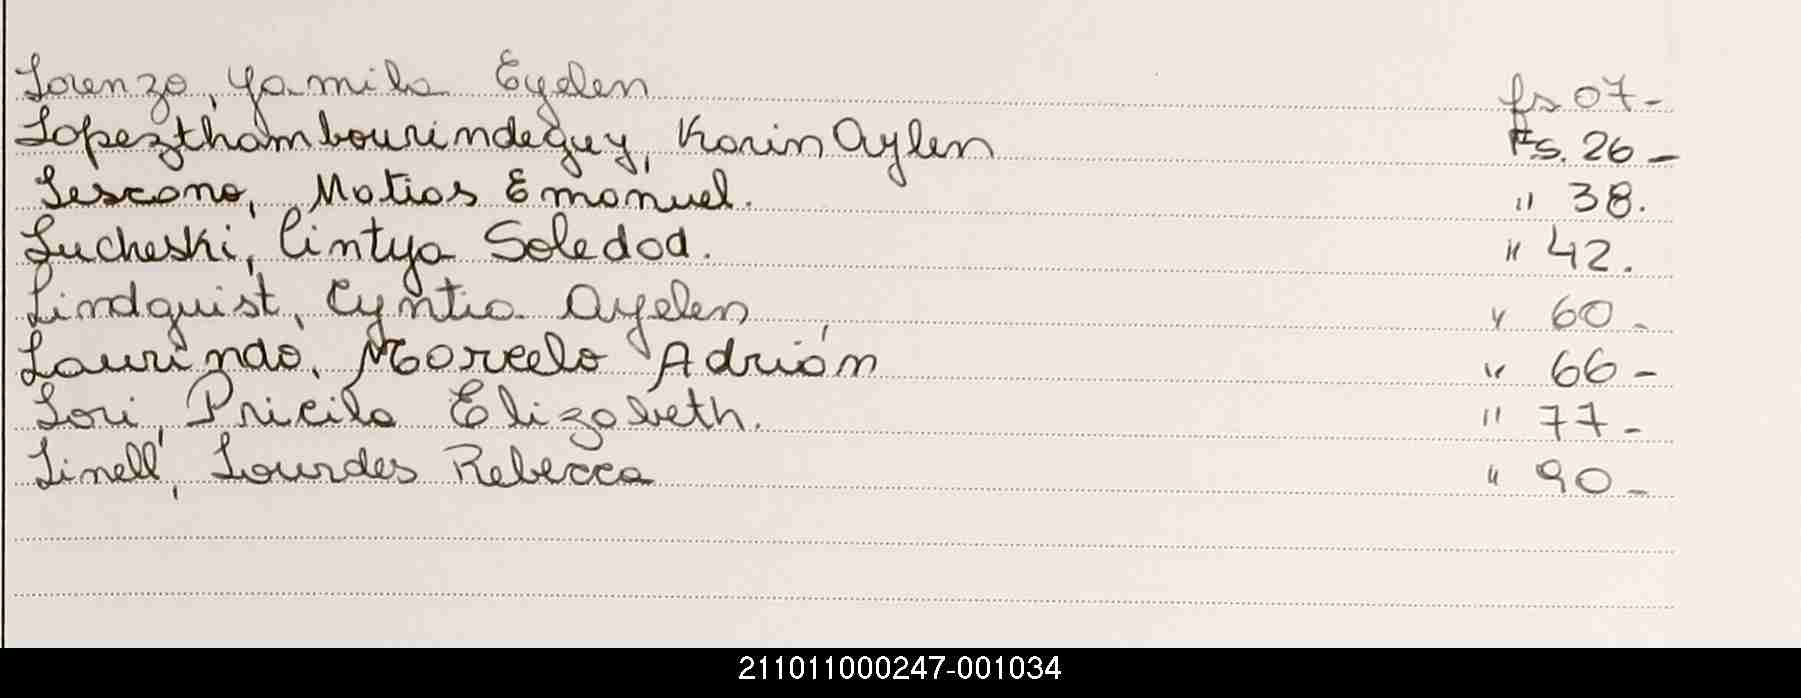 Lorenzo, Yamila Eyelen fs 07-
Lopezthambourindeguy, Karin Aylen Fs. 26 -
Lescano, Matias Emanuel. " 38.
Lucheski, Cintya Soledad. " 42.
Lindquist, Cyntia Ayelen " 60 -
Laurindo, Marcelo Adrián " 66 -
Lori, Pricila Elizabeth. " 77 -
Linell, Lourdes Rebecca " 90 -
211011000247-001034